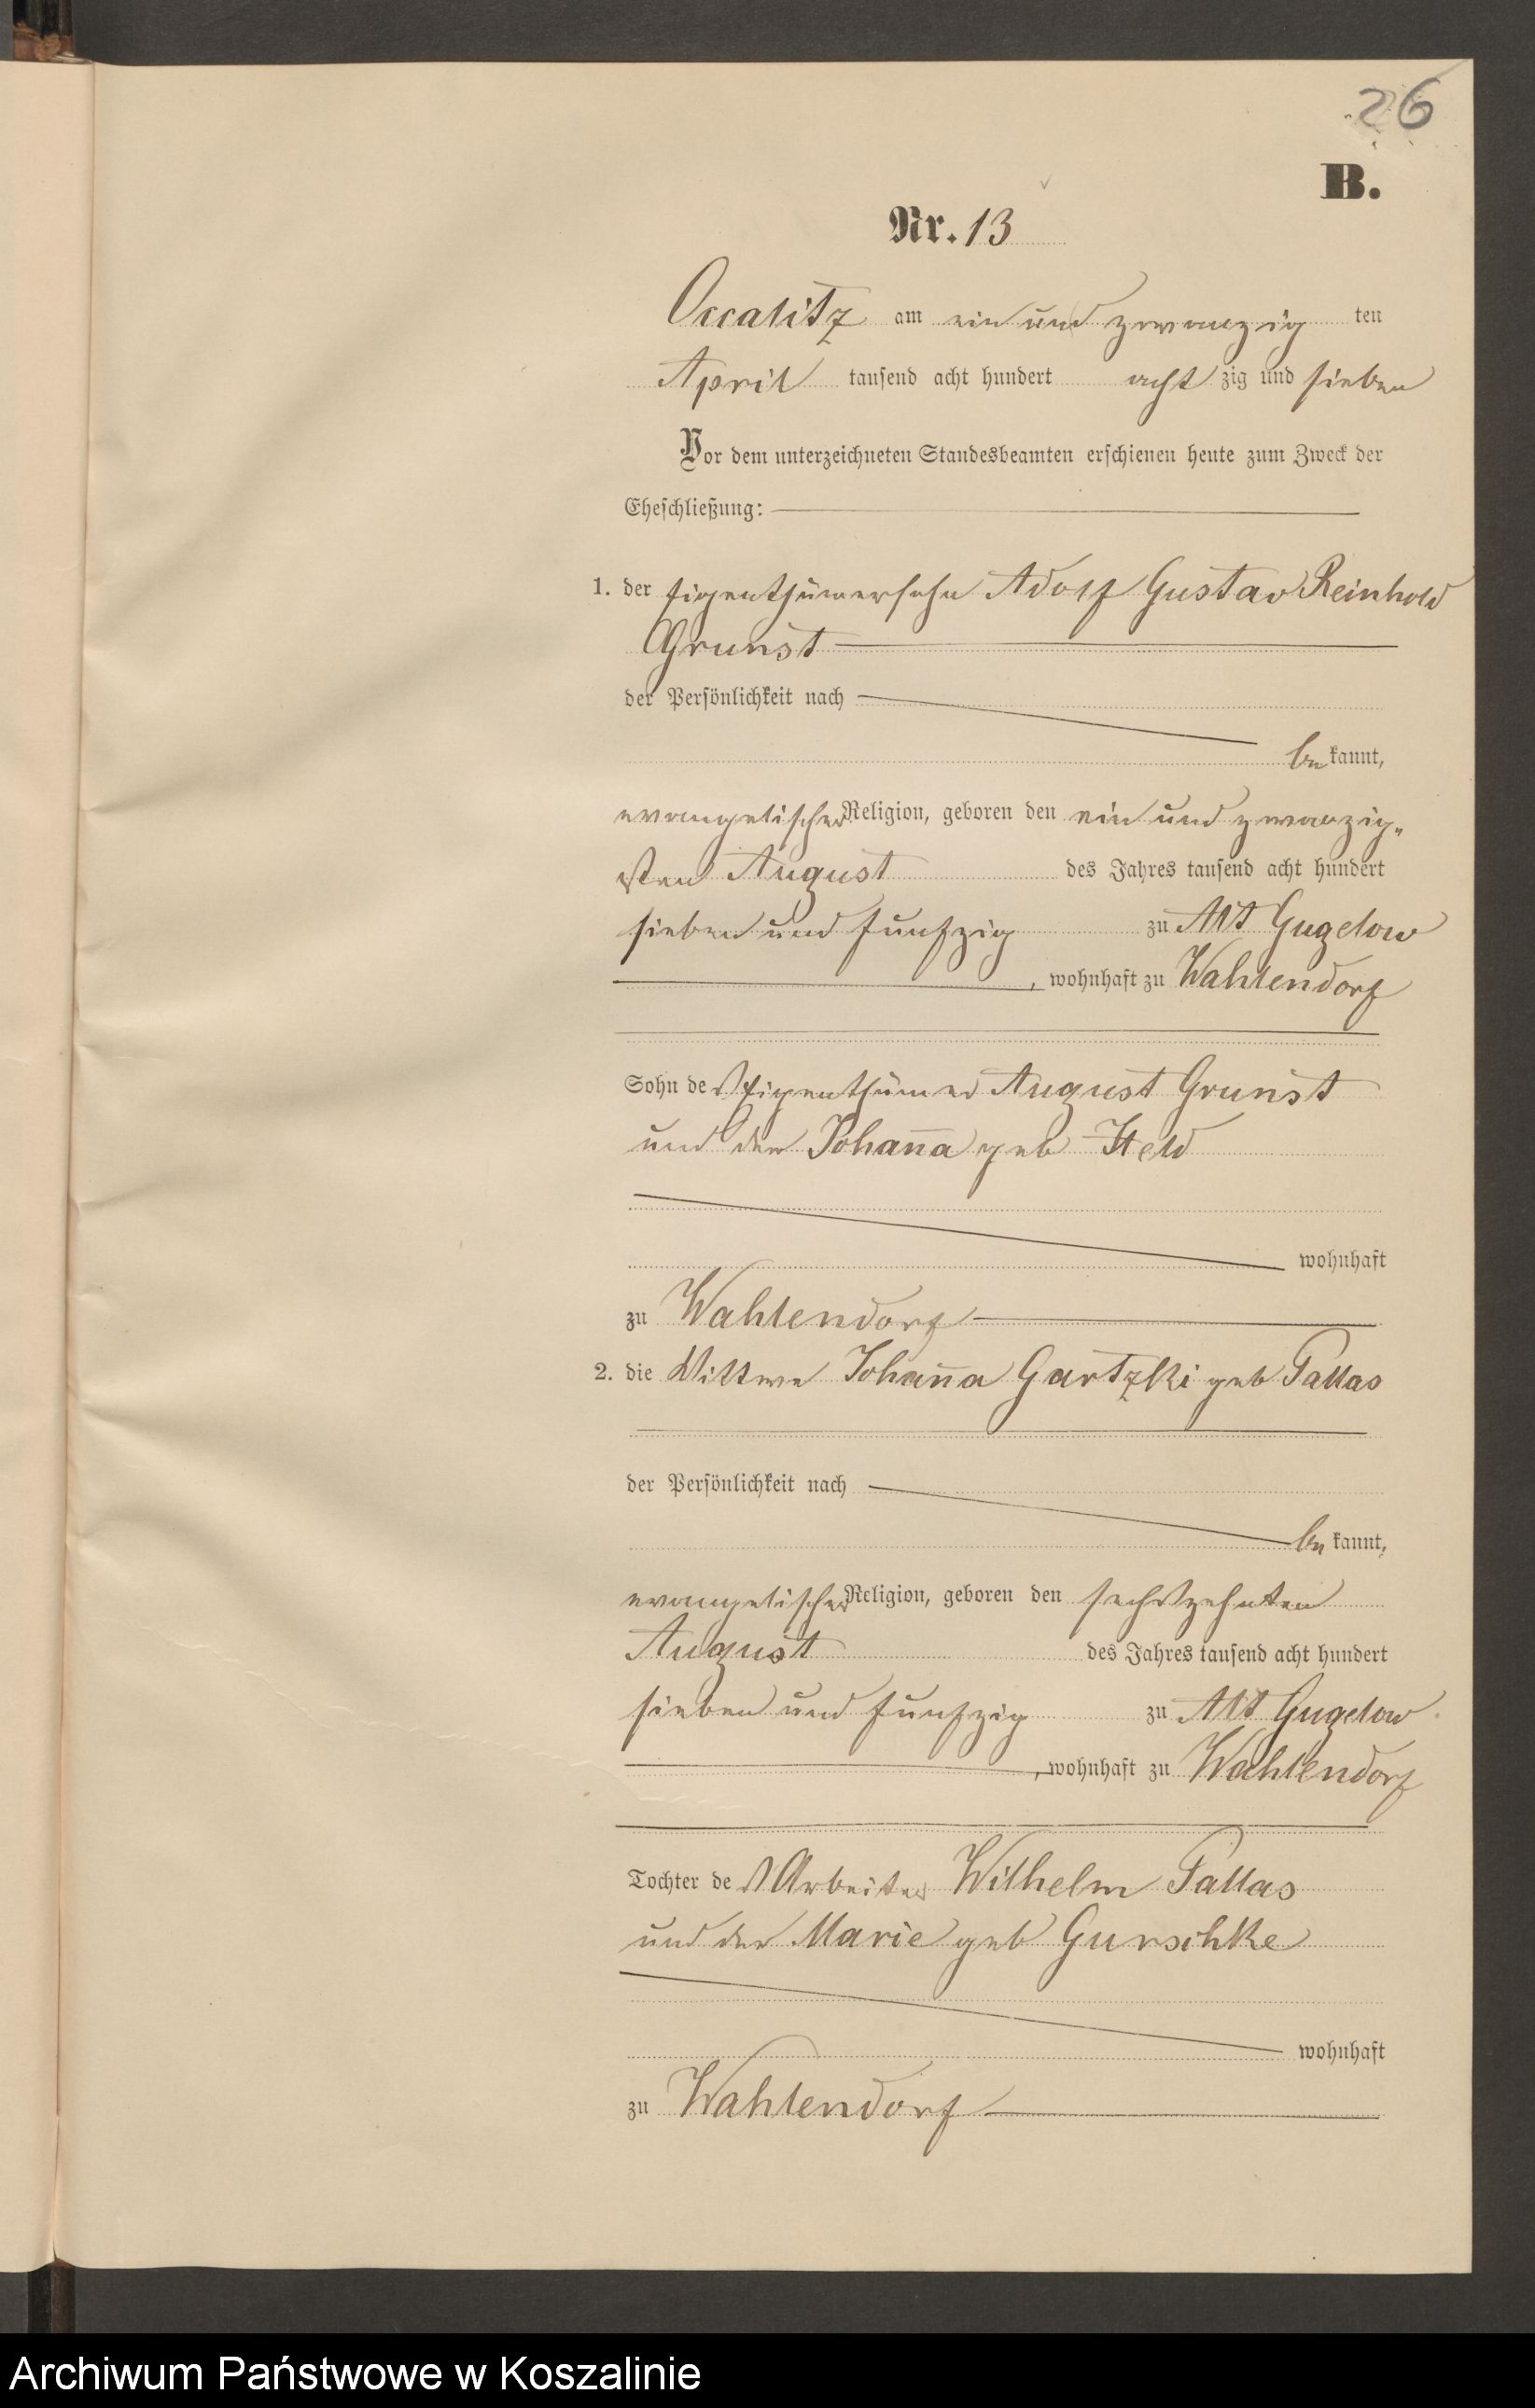 26
B.
Nr. 13
Occalitz am ein und zwanzig ten
April tausend acht hundert acht zig und sieben
Vor dem unterzeichneten Standesbeamten erschienen heute zum Zweck der
Eheschließung:
1. der Eigenthümersohn Adolf Gustav Reinhold
Grunst
der Persönlichkeit nach
be kannt,
evangelischer Religion, geboren den ein und zwanzig„
sten August des Jahres tausend acht hundert
sieben und funfzig zu Alt Gugelow
, wohnhaft zu Wahlendorf
Sohn des Eigenthümer August Grunst
und der Johan̄a geb Held
wohnhaft
zu Wahlendorf
2. die Wittwe Johan̄a Gartzki geb Pallas
der Persönlichkeit nach
be kannt,
evangelischer Religion, geboren den sechszehnten
August des Jahres tausend acht hundert
sieben und funfzig zu Alt Gugelow
, wohnhaft zu Wahlendorf
Tochter des Arbeiter Wilhelm Pallas
und der Marie geb Gurschke
wohnhaft
zu Wahlendorf
Archiwum Państwowe w Koszalinie